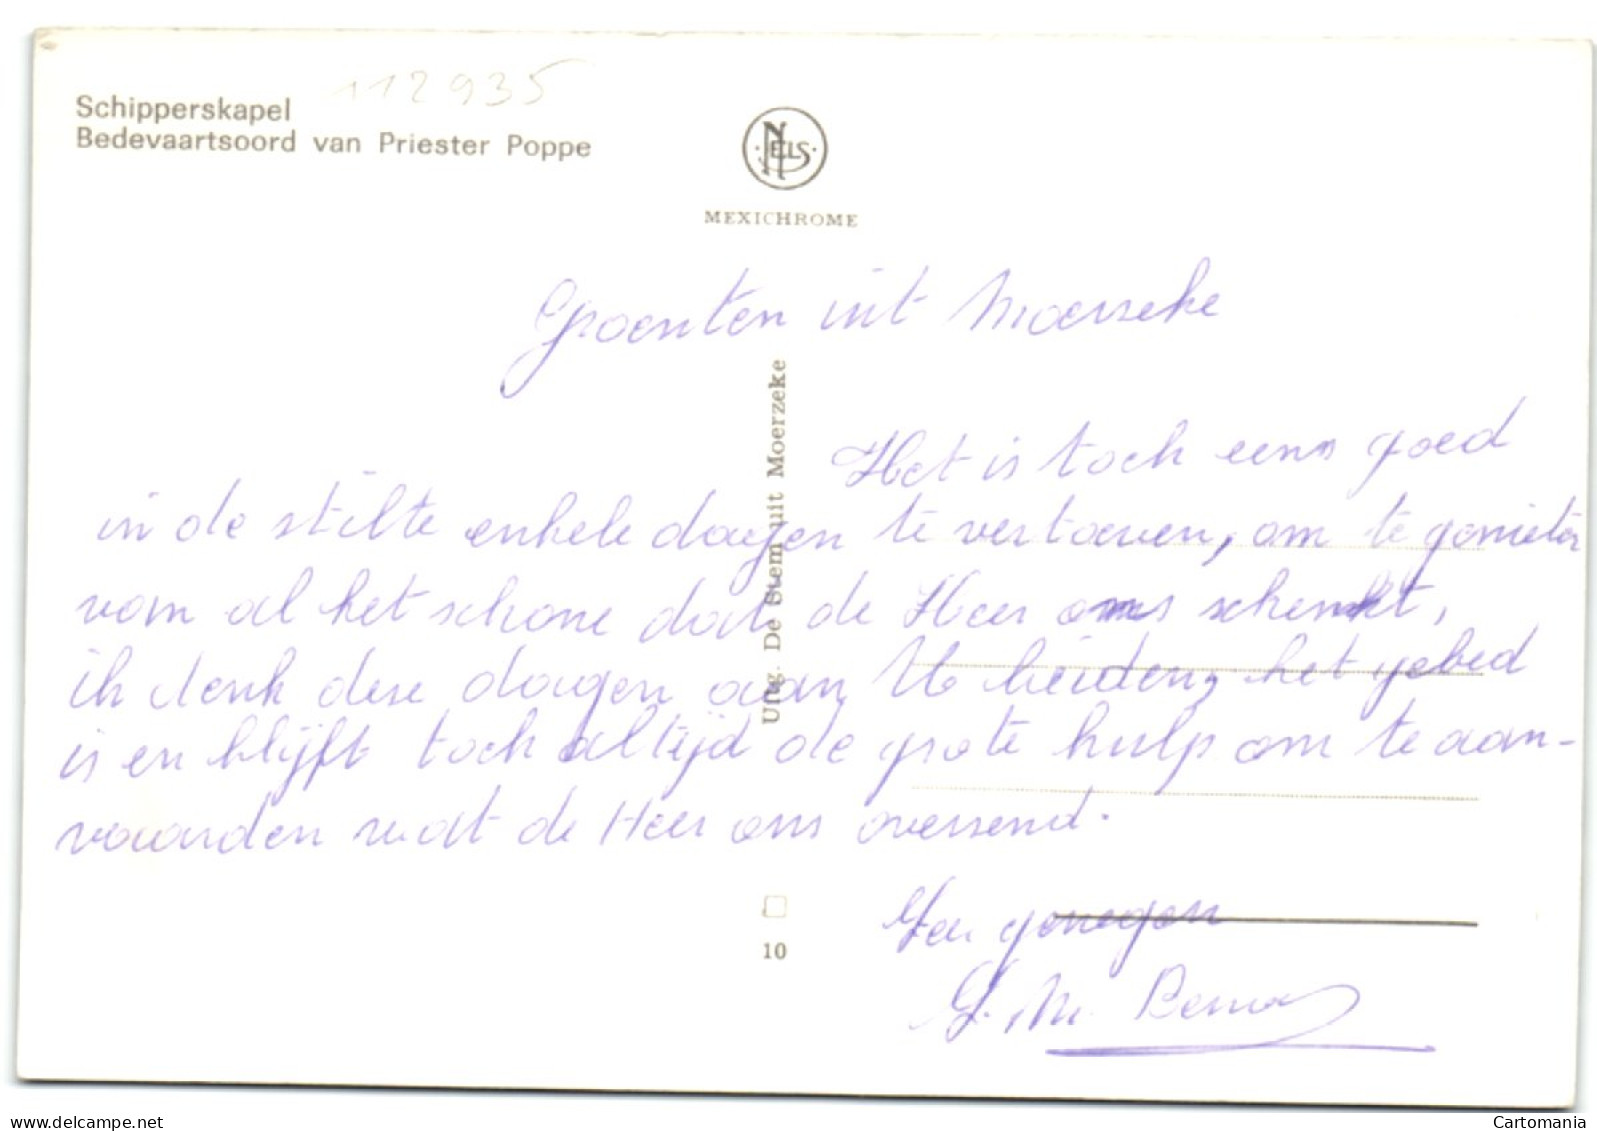 112935
Schipperskapel
Bedevaartsoord van Priester Poppe
NELS
MEXICHROME
Groenten uit Moerzeke
Het is toch eens goed
in de stilte enkele dagen te vertoeven, om te genieten
van al het schone dat de Heer ons schenkt,
ik denk deze dagen aan U beiden, het gebed
is en blijft toch altijd de grote hulp om te aan-
vaarden wat de Heer ons overzend.
Uitg. De Stem uit Moerzeke
10
Zeer genegen
Z. M.
delcampe.net
Cartomania